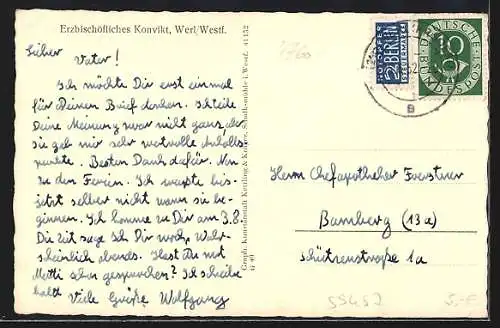 Erzbischöfliches Konvikt, Werl/Westf.
Lieber Vater!
Ich möchte Dir erst einmal
für Deinen Brief danken. Ich teile
Deine Meinung zwar nicht ganz, aber
sie gab mir sehr wertvolle Anhalts
punkte. Besten Dank dafür. Nun
zu den Ferien. Ich wusste bis-
jetzt selber nicht wann sie be-
ginnen. Ich komme zu Dir am 3.8.
Die Zeit sage ich Dir noch, Wahr-
scheinlich abends. Hast Du mit
Mutti schon gesprochen? Ich schreibe
bald Viele Grüße Wolfgang
Graph. Kunstanstalt Kettling & Krüger, Schalksmühle i. Westf. 41152
G 40
1760
NOTOPFER
2 BERLIN
STEUERMARKE
DEUTSCHE BUNDESPOST
10
52
a
Herrn Chefapotheker Foerstner
Bamberg (13a)
Schützenstraße 1a
55457
5,-€